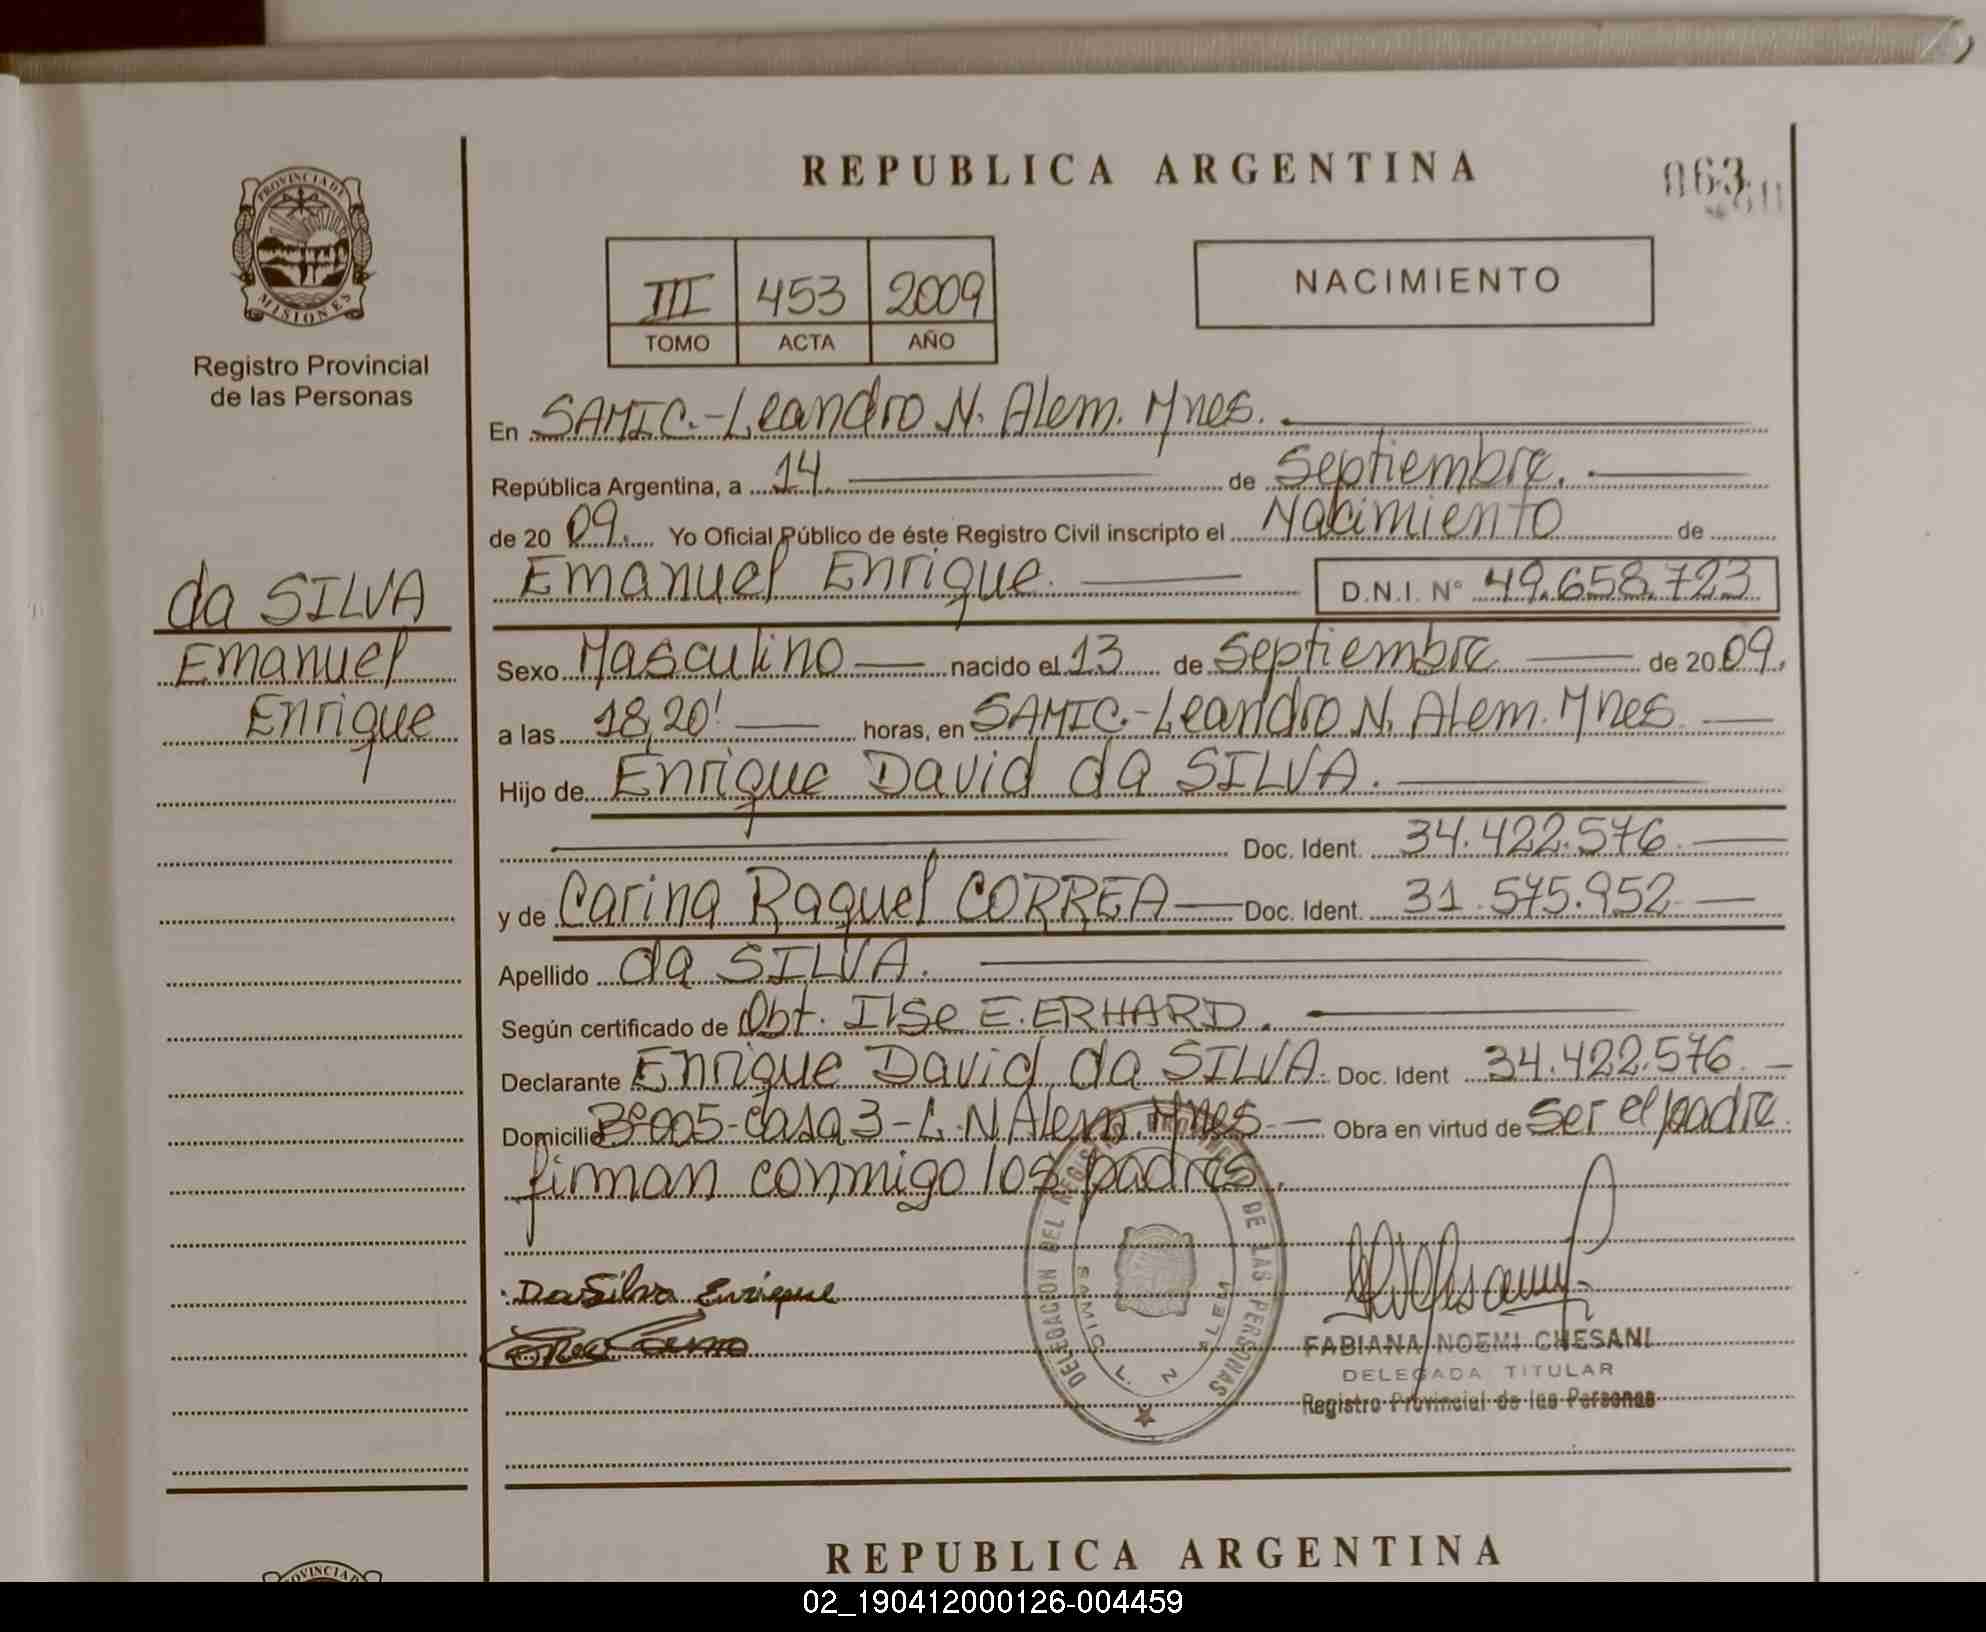 REPUBLICA ARGENTINA
063
PROVINCIA DE
MISIONES
Registro Provincial
de las Personas
III 453 2009
TOMO ACTA AÑO
NACIMIENTO
En SAMIC.-Leandro N. Alem. Mnes.
República Argentina, a 14 de Septiembre.
de 20 09. Yo Oficial Público de éste Registro Civil inscripto el Nacimiento de
Emanuel Enrique. D.N.I. Nº 49.658.723
da SILVA
Emanuel
Enrique
Sexo Masculino nacido el 13 de Septiembre de 20 09.
a las 18,20' horas, en SAMIC.-Leandro N. Alem. Mnes.
Hijo de Enrique David da SILVA.
Doc. Ident. 34.422.576.
y de Carina Raquel CORREA Doc. Ident. 31.575.952.
Apellido da SILVA.
Según certificado de Obt. Ilse E. ERHARD.
Declarante Enrique David da SILVA. Doc. Ident 34.422.576.
Domicilio Bº005-Casa 3-L.N Alem. Mnes. Obra en virtud de Ser el padre.
firman conmigo los padres.
DELEGACION DEL REGISTRO PROVINCIAL DE LAS PERSONAS
SAMIC L. N. ALEM
Da Silva Enrique
FABIANA NOEMI CHESANI
DELEGADA TITULAR
Registro Provincial de las Personas
REPUBLICA ARGENTINA
02_190412000126-004459